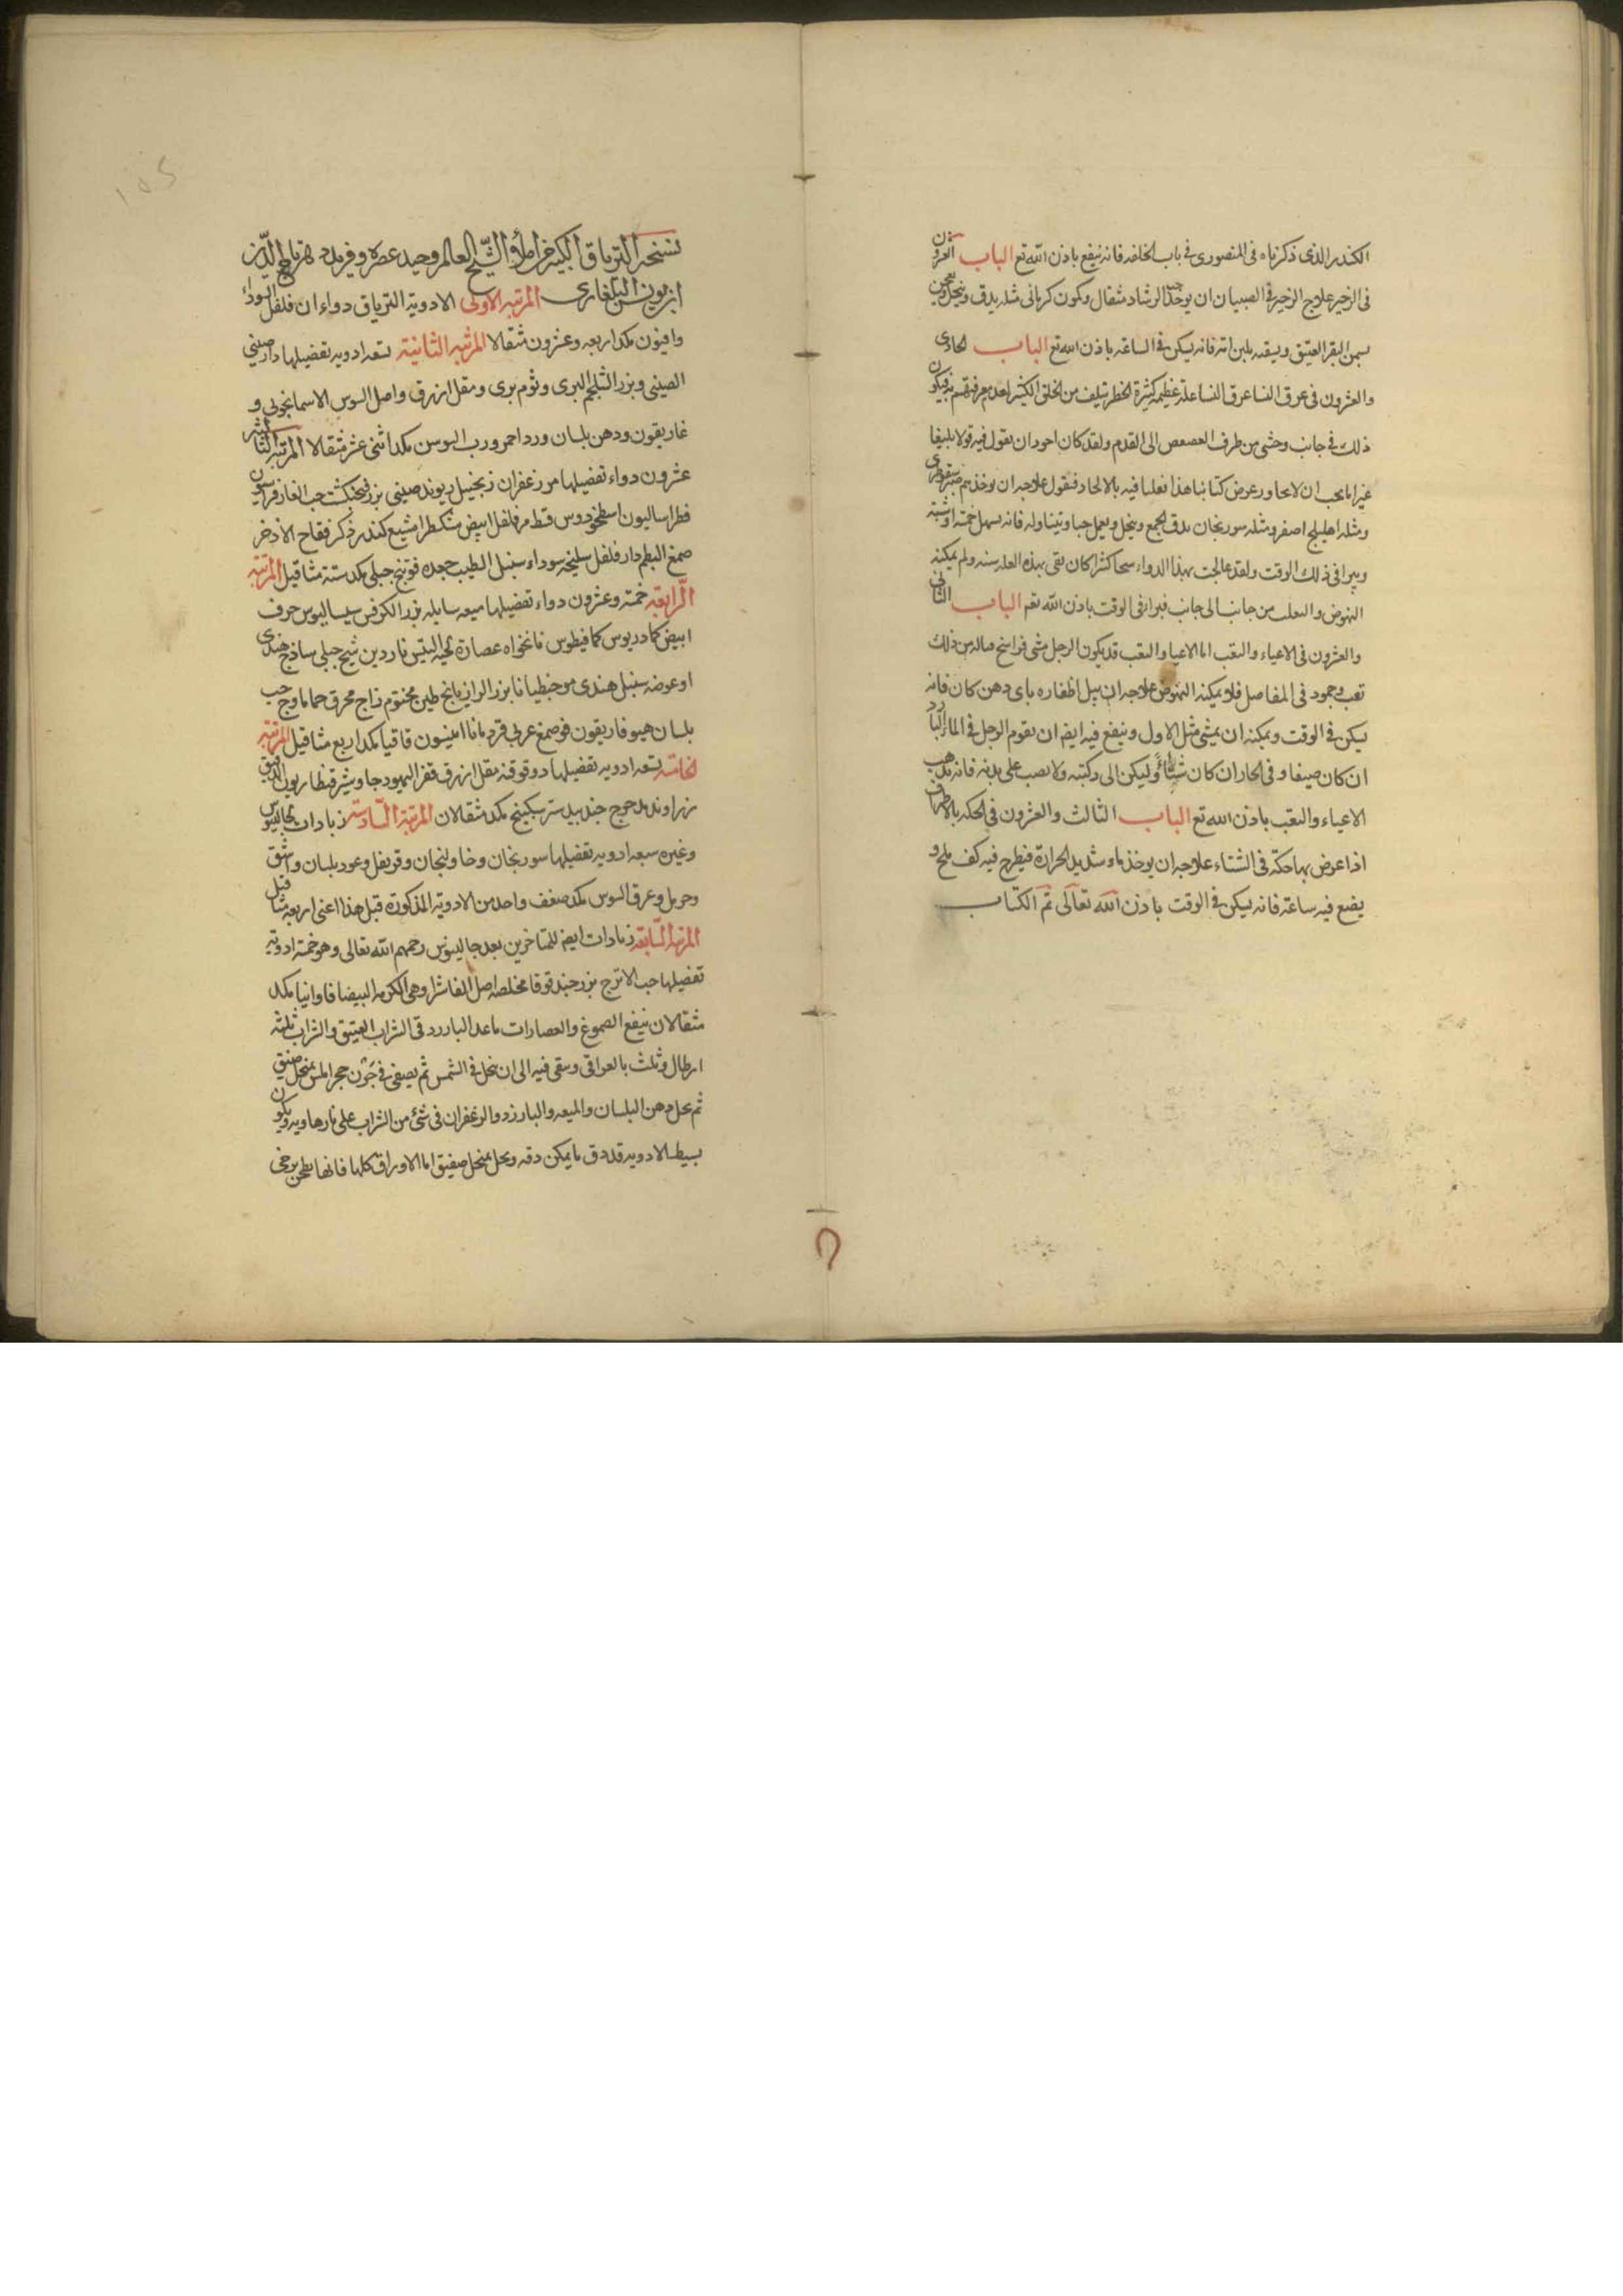 الكندر الذى ذكرناه فى المنصورى فى باب الخاصه فانه ينفع باذن الله تع الباب العشرون
فى الزحير علاج الزحير فى الصبيان ان يوخذ حب الرشاد مثقال وكمون كرمانى مثله يدق وينخل ويعجن
بسمن البقر العتيق ويسقيه بلبن امه فانه يسكن فى الساعه باذن الله تع الباب الحادى
والعشرون فى عرق النسا عرق النسا علة عظيمه كثيرة الخطر تتلف من الخلق الكثير لعدم معرفتهم به فيكون
ذلك فى جانب وحشى من طرف العصعص الى القدم ولقد كان اجود ان نقول فيه قولا بليغا
غير انا يجب ان لا نجاوز عرض كتابنا هذا فعلنا فيه بالايجاز فنقول علاجه ان يوخذ صبر سقوطرى
ومثله اهليلج اصفر ومثله سورنجان يدق الجمع وينخل ويعمل حبا ويتناوله فانه يسهل خمسة او ستة
ويبرا فى ذلك الوقت ولقد عالجت بهذا الدواء كان بقى بهذه العله سنه ولم يمكنه
النهوض والتقلب من جانب الى جانب فبرا فى الوقت باذن الله تعم الباب الثانى
والعشرون فى الاعياء والتعب اما الاعيا والتعب قد يكون الرجل مشى فراسخ فناله من ذلك
تعب وجمود فى المفاصل فلا يمكنه النهوض علاجه ان يبل اظفاره باى دهن كان فانه
يسكن فى الوقت ويمكنه ان يمشى مثل الاول وينفع فيه ايضا ان يقوم الرجل فى الماء البارد
ان كان صيفا وفى الحار ان كان شتاءً وليكن الى ركبته ولا يصب على بدنه فانه يذهب
الاعياء والتعب باذن الله تع الباب الثالث والعشرون فى الحكه بالاطراف
اذا عرض بها حكة فى الشتاء علاجه ان يوخذ ماء شديد الحرارة فيطرح فيه كف ملح و
يضع فيه ساعة فانه يسكن فى الوقت باذن الله تعالى تم الكتاب
١٥٢
نسخه الترياق الكبير من املاء الشيخ العالم وحيد عصره وفريد دهره تاج الدين
ابن يونس البلغارى المرتبه الاولى الادوية الترياق دواءان فلفل اسود
وافيون مكد اربعه وعشرون مثقالا المرتبه الثانية تسعه ادويه تفضيلها دارصينى
الصينى وبزر الشلجم البرى وثوم برى ومقل ازرق واصل السوس الاسمانجونى و
غاريقون ودهن بلسان ورد احمر ورب السوس مكد اثنى عشر مثقالا المرتبه الثالثه
عشرون دواء تفضيلها مر زعفران زنجبيل ريوند صينى بزر فنجنكشت حب الغار فراسيون
فطراساليون اسطخودوس قسط مر فلفل ابيض مشكطرامشيع كندر ذكر فقاح الاذخر
صمغ البطم دار فلفل سليخه سوداء سنبل الطيب جعده فوتنج جبلى مكد ستة مثاقيل المرتبه
الرابعه خمسة وعشرون دواء تفضيلها ميعه سايله بزر الكرفس سيساليوس حرف
ابيض كمادريوس كمافيطوس نانخواه عصارة لحية التيس ناردين شيح جبلى ساذج هندى
او عوضه سنبل هندى مو جنطيانا بزر الرازيانج طين مختوم زاج محرق حماما وج حب
بلسان هيوفاريقون فو صمغ عربى قردمانا انيسون قاقيا مكد اربع مثاقيل المرتبه
الخامسه تسعه ادويه تفضيلها دوقو قنه مقل ازرق قفر اليهود جاوشير قنطاريون الدقيق
زراوند مدحرج جندبيدستر سكبينج مكد مثقالان المرتبة السادسة زيادات لجالينوس
وغيره سبعه ادويه تفضيلها سورنجان وخاولنجان وقرنفل وعود بلسان واشق
وحرمل وعرق السوس مكد ضعف واحد من الادوية المذكورة قبل هذا اعنى اربعه مثاقيل
المرتبه السابعه زيادات ايضا للمتاخرين بعد جالينوس رحمهم الله تعالى وهو خمسة ادوية
تفضيلها حب الاترج بزر حندقوقا مخلصه اصل الفاشرا وهى الكرمه البيضا فاوانيا مكد
مثقالان ينقع الصموغ والعصارات ما عدا البارزد فى الشراب العتيق والشراب ثلثة
ارطال وثلث بالعراقى وتبقى فيه الى ان ينحل فى الشمس ثم يصفى فى جرن حجر املس بمنخل صفيق
ثم يحل دهن البلسان والميعه والبارزد والزعفران فى شئ من الشراب على نار هاديه ويكون
بسيط الادويه قد دق ما يمكن دقه ونخل بمنخل صفيق اما الاوراق كلها فانها تطحن برحى